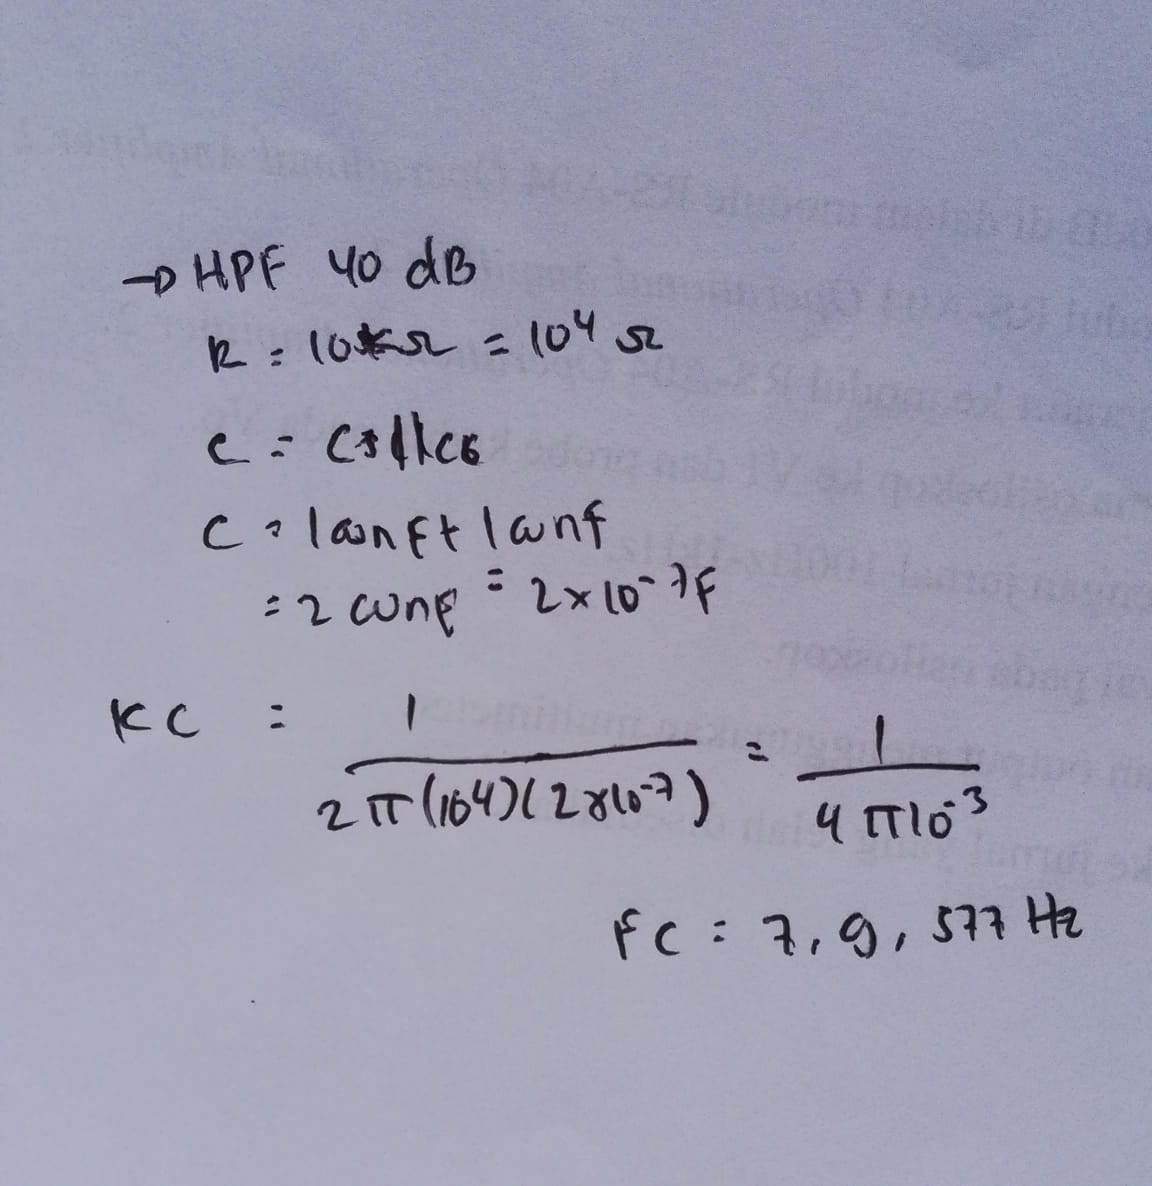 → HPF 40 dB
R = 10kΩ = 10⁴ Ω
C = C5//C6
C = 100nF + 100nF
= 200nF = 2x10⁻⁷F
KC = 1 / 2π(10⁴)(2x10⁻⁷) = 1 / 4π10⁻³
FC = 7,9,577 Hz